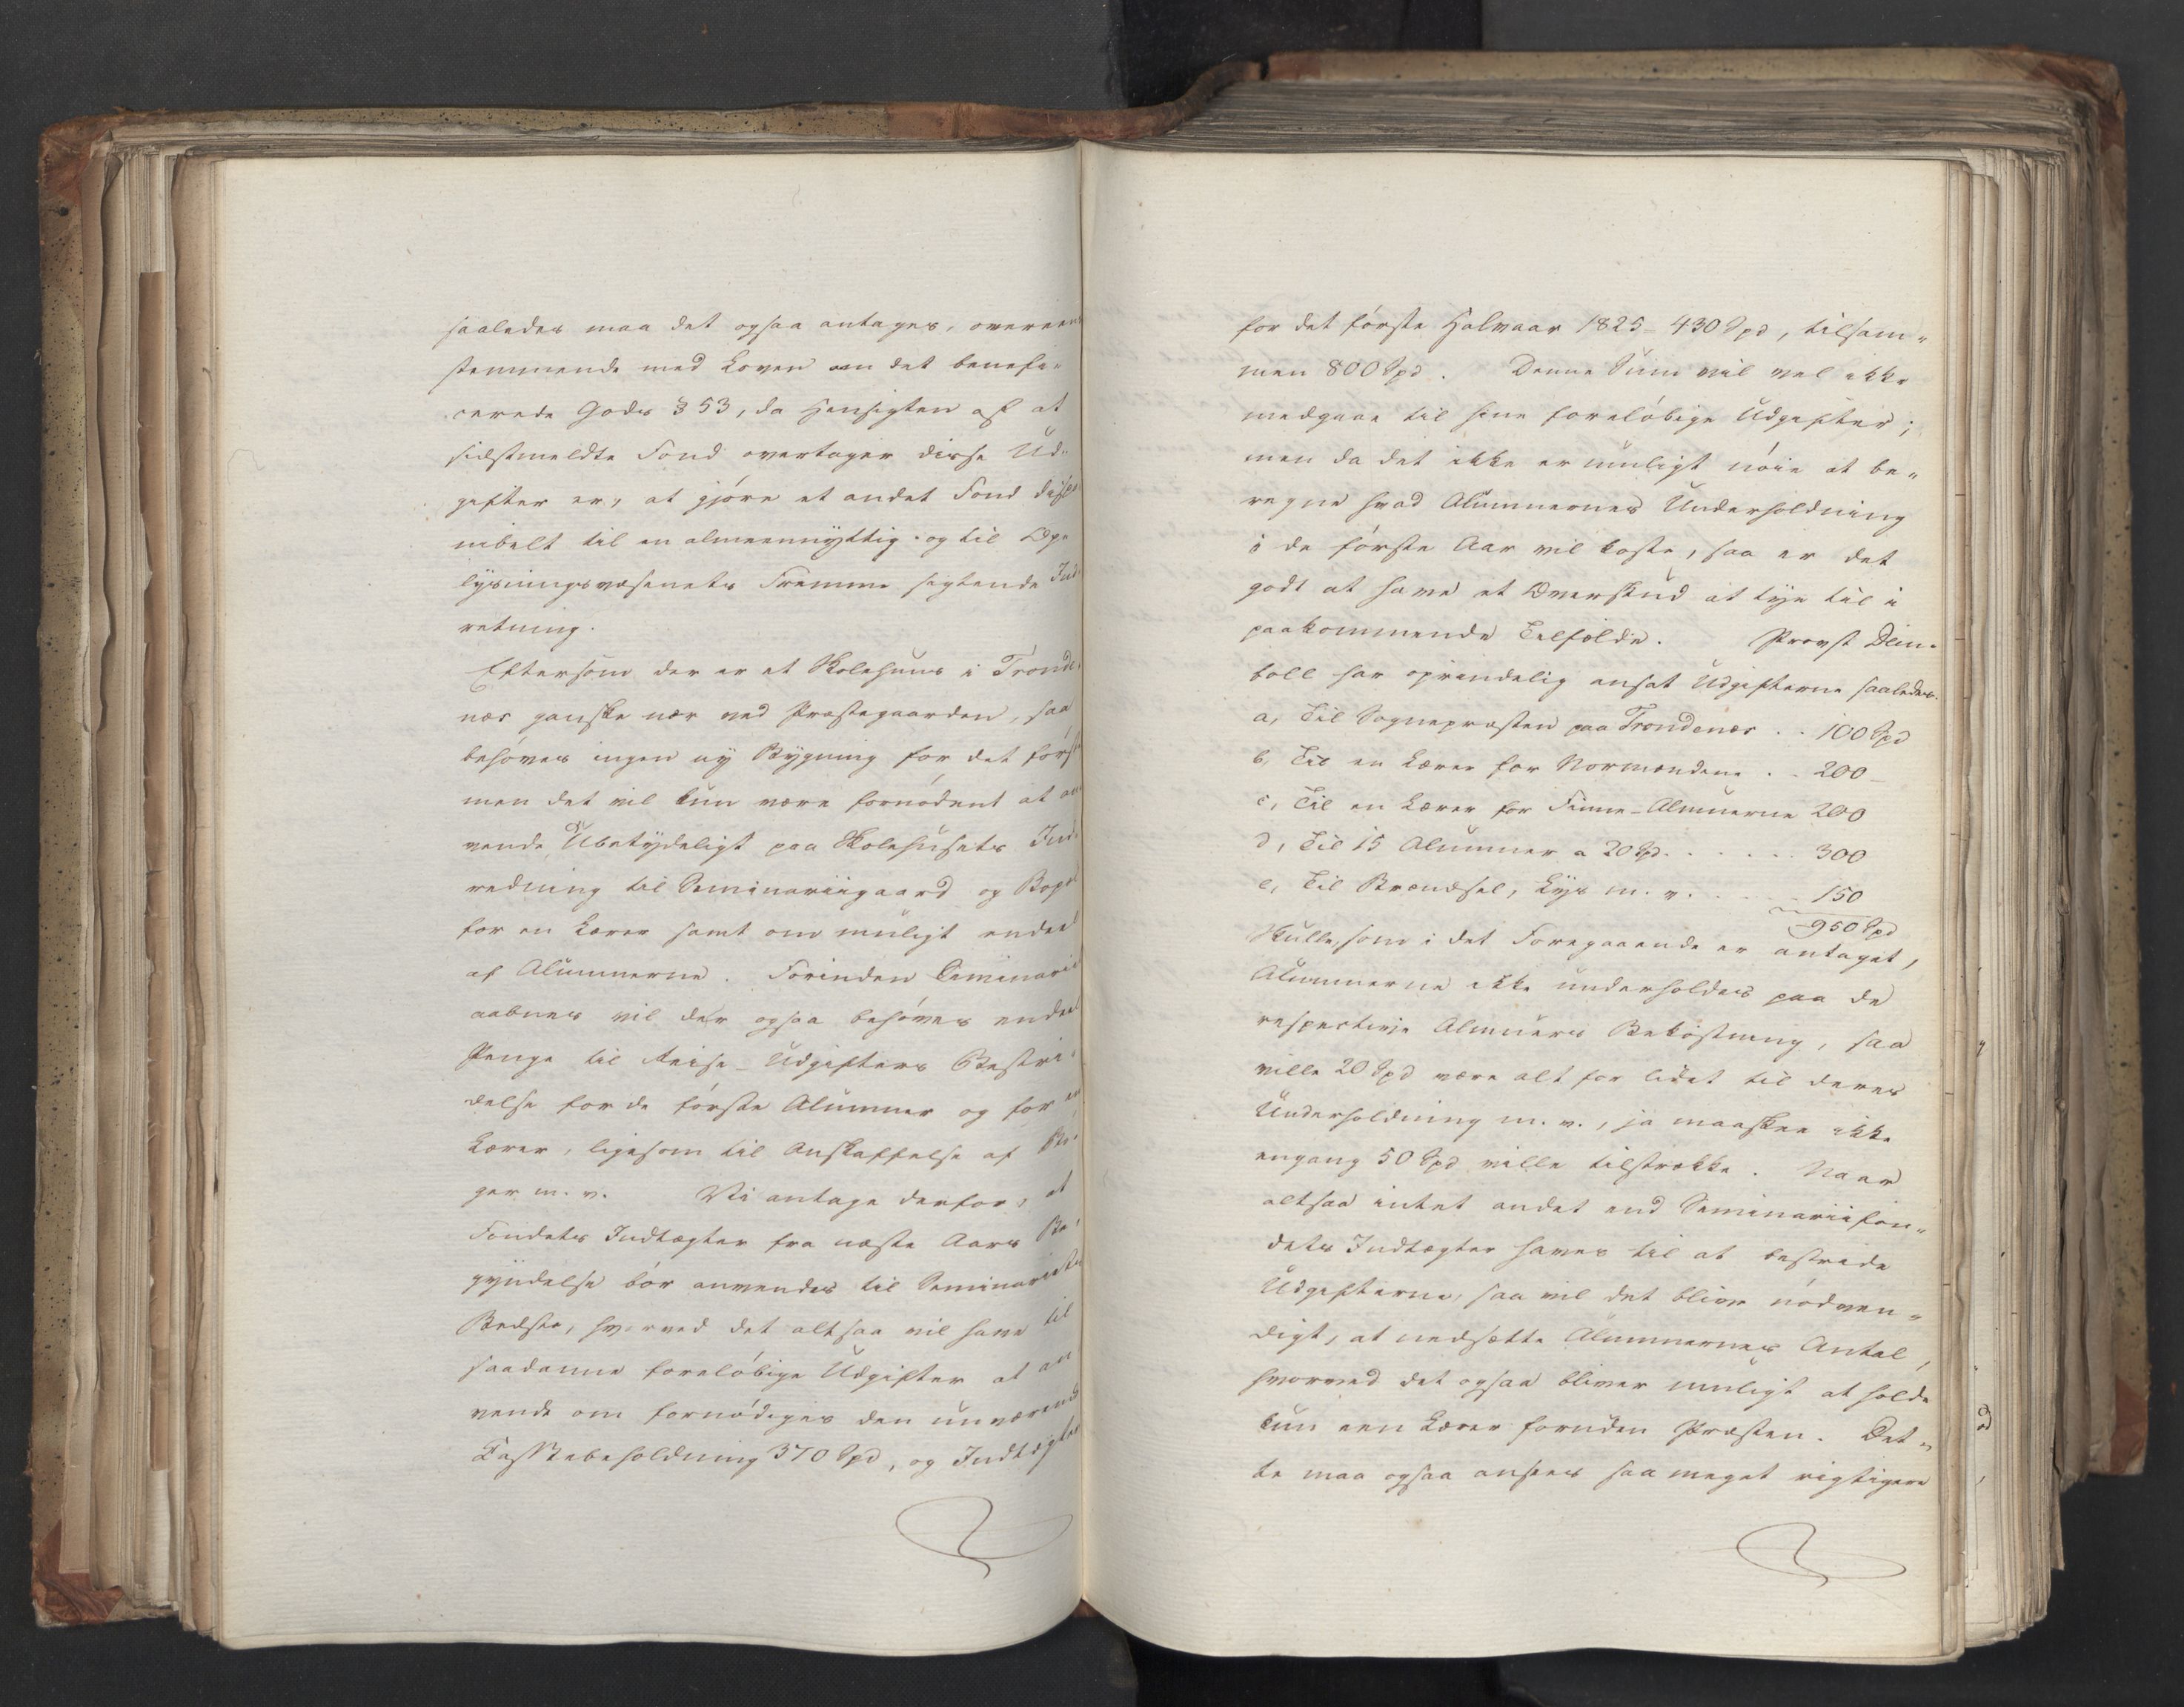 saaledes maa det ogsaa antages, overeens
stemmende med Loven om det benefi-
cerede Gods § 53, da Hensigten af at
sidstmeldte Fond overtager disse Ud-
gifter er, at gjøre et andet Fond dispo
nibelt til en almeennyttig og til Op-
lysningsvæsenets Fremme sigtende Ind-
retning.
Eftersom der er et Skolehuus i Tronde-
næs ganske nær ved Præstegaarden, saa
behøves ingen ny Bygning for det først
men det vil kun være fornødent at an
vende Ubetydeligt paa Skolehusets Ind-
redning til Seminariigaard og Bopæl
for en Lærer samt om muligt endeel
af Alumnerne. Forinden Seminariet
aabnes vil der ogsaa behøves endeel
Penge til Reise-Udgifters Bestri-
delse for de første Alumner og for en
Lærer, ligesom til Anskaffelse af Bø-
ger m. v. Vi antage derfor, at
Fondets Indtægter fra næste Aars Be-
gyndelse bør anvendes til Seminariets
Bedste, hvorved det altsaa vil have til
saadanne foreløbige Udgifter at an
vende om fornødiges den nuværende
Cassebeholdning 370 Spd, og Indtægter
for det første Halvaar 1825 - 430 Spd, tilsam-
men 800 Spd. Denne Sum vil vel ikke
medgaae til hine foreløbige Udgifter;
men da det ikke er muligt nøie at be-
regne hvad Alumnernes Underholdning
i de første Aar vil koste, saa er det
godt at have et Overskud at tye til i
paakommende Tilfælde. Provst Dein-
boll har oprindelig ansat Udgifterne saaledes.
a, Til Sognepræsten paa Trondenæs . . 100 Spd
b, Til en Lærer for Normændene . . 200 -
c, Til en Lærer for Finne-Almuerne 200
d, Til 15 Alumner a 20 Spd. . . . . . . 300
e, Til Brændsel, Lys m. v. . . . . . 150
950 Spd
Skulle, som i det Foregaaende er antaget,
Alumnerne ikke underholdes paa de
respective Almuers Bekostning, saa
ville 20 Spd være alt for lidet til deres
Underholdning m. v., ja maaskee ikke
engang 50 Spd ville tilstrække. Naar
altsaa intet andet end Seminariifon-
dets Indtægter haves til at bestride
Udgifterne, saa vil det blive nødven-
digt, at nedsætte Alumnernes Antal,
hvorved det ogsaa bliver muligt at holde
kun een Lærer foruden Præsten. Det-
te maa ogsaa ansees saa meget rigtigere